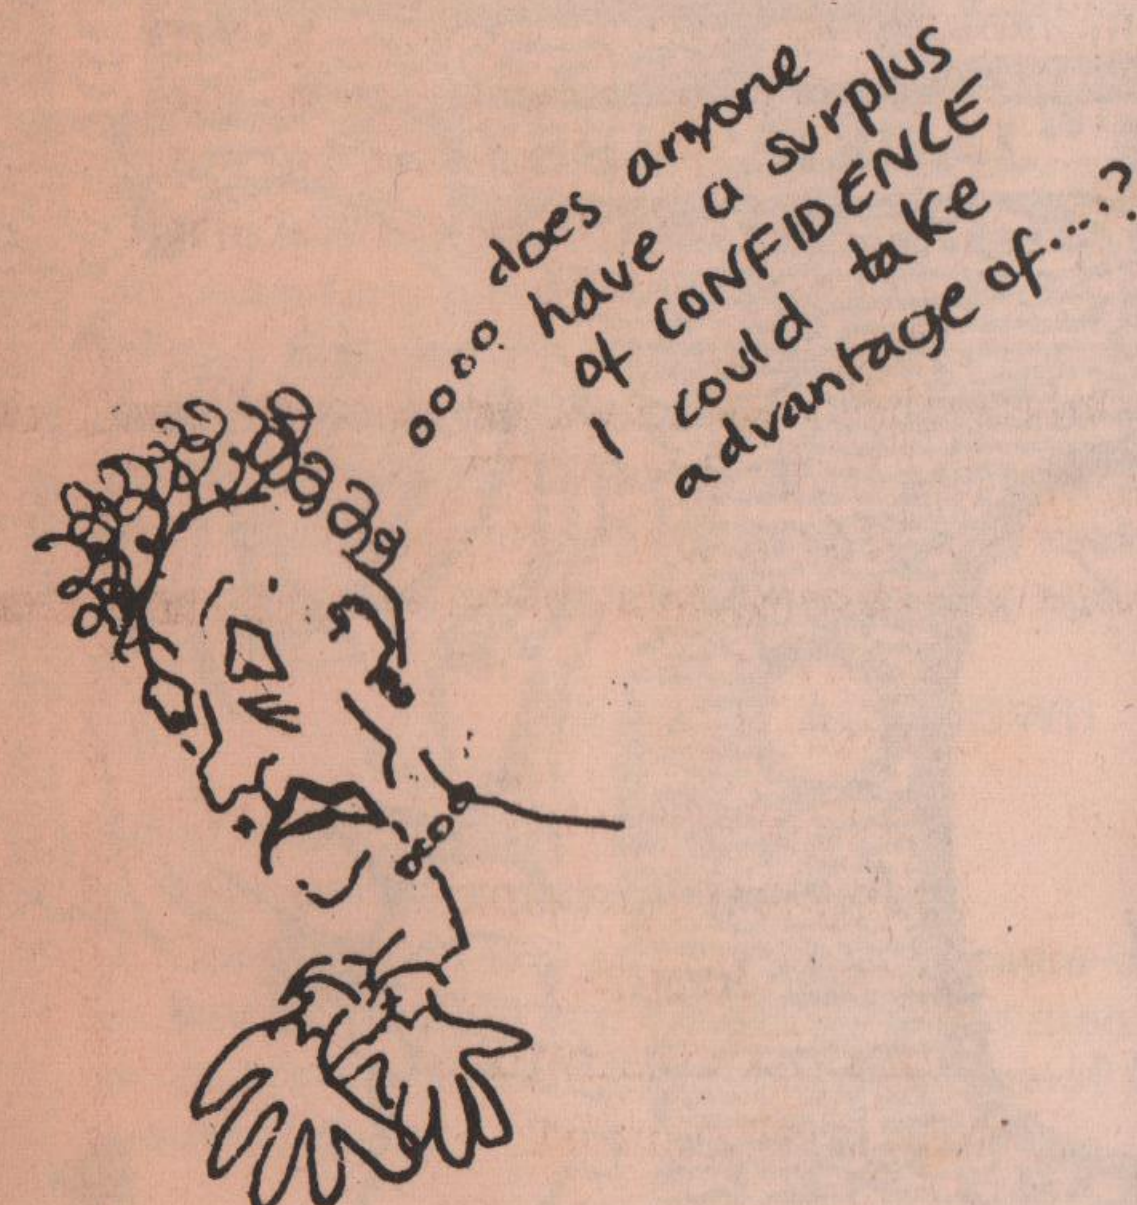 does anyone
have a surplus
of CONFIDENCE
I could take
advantage of.....?